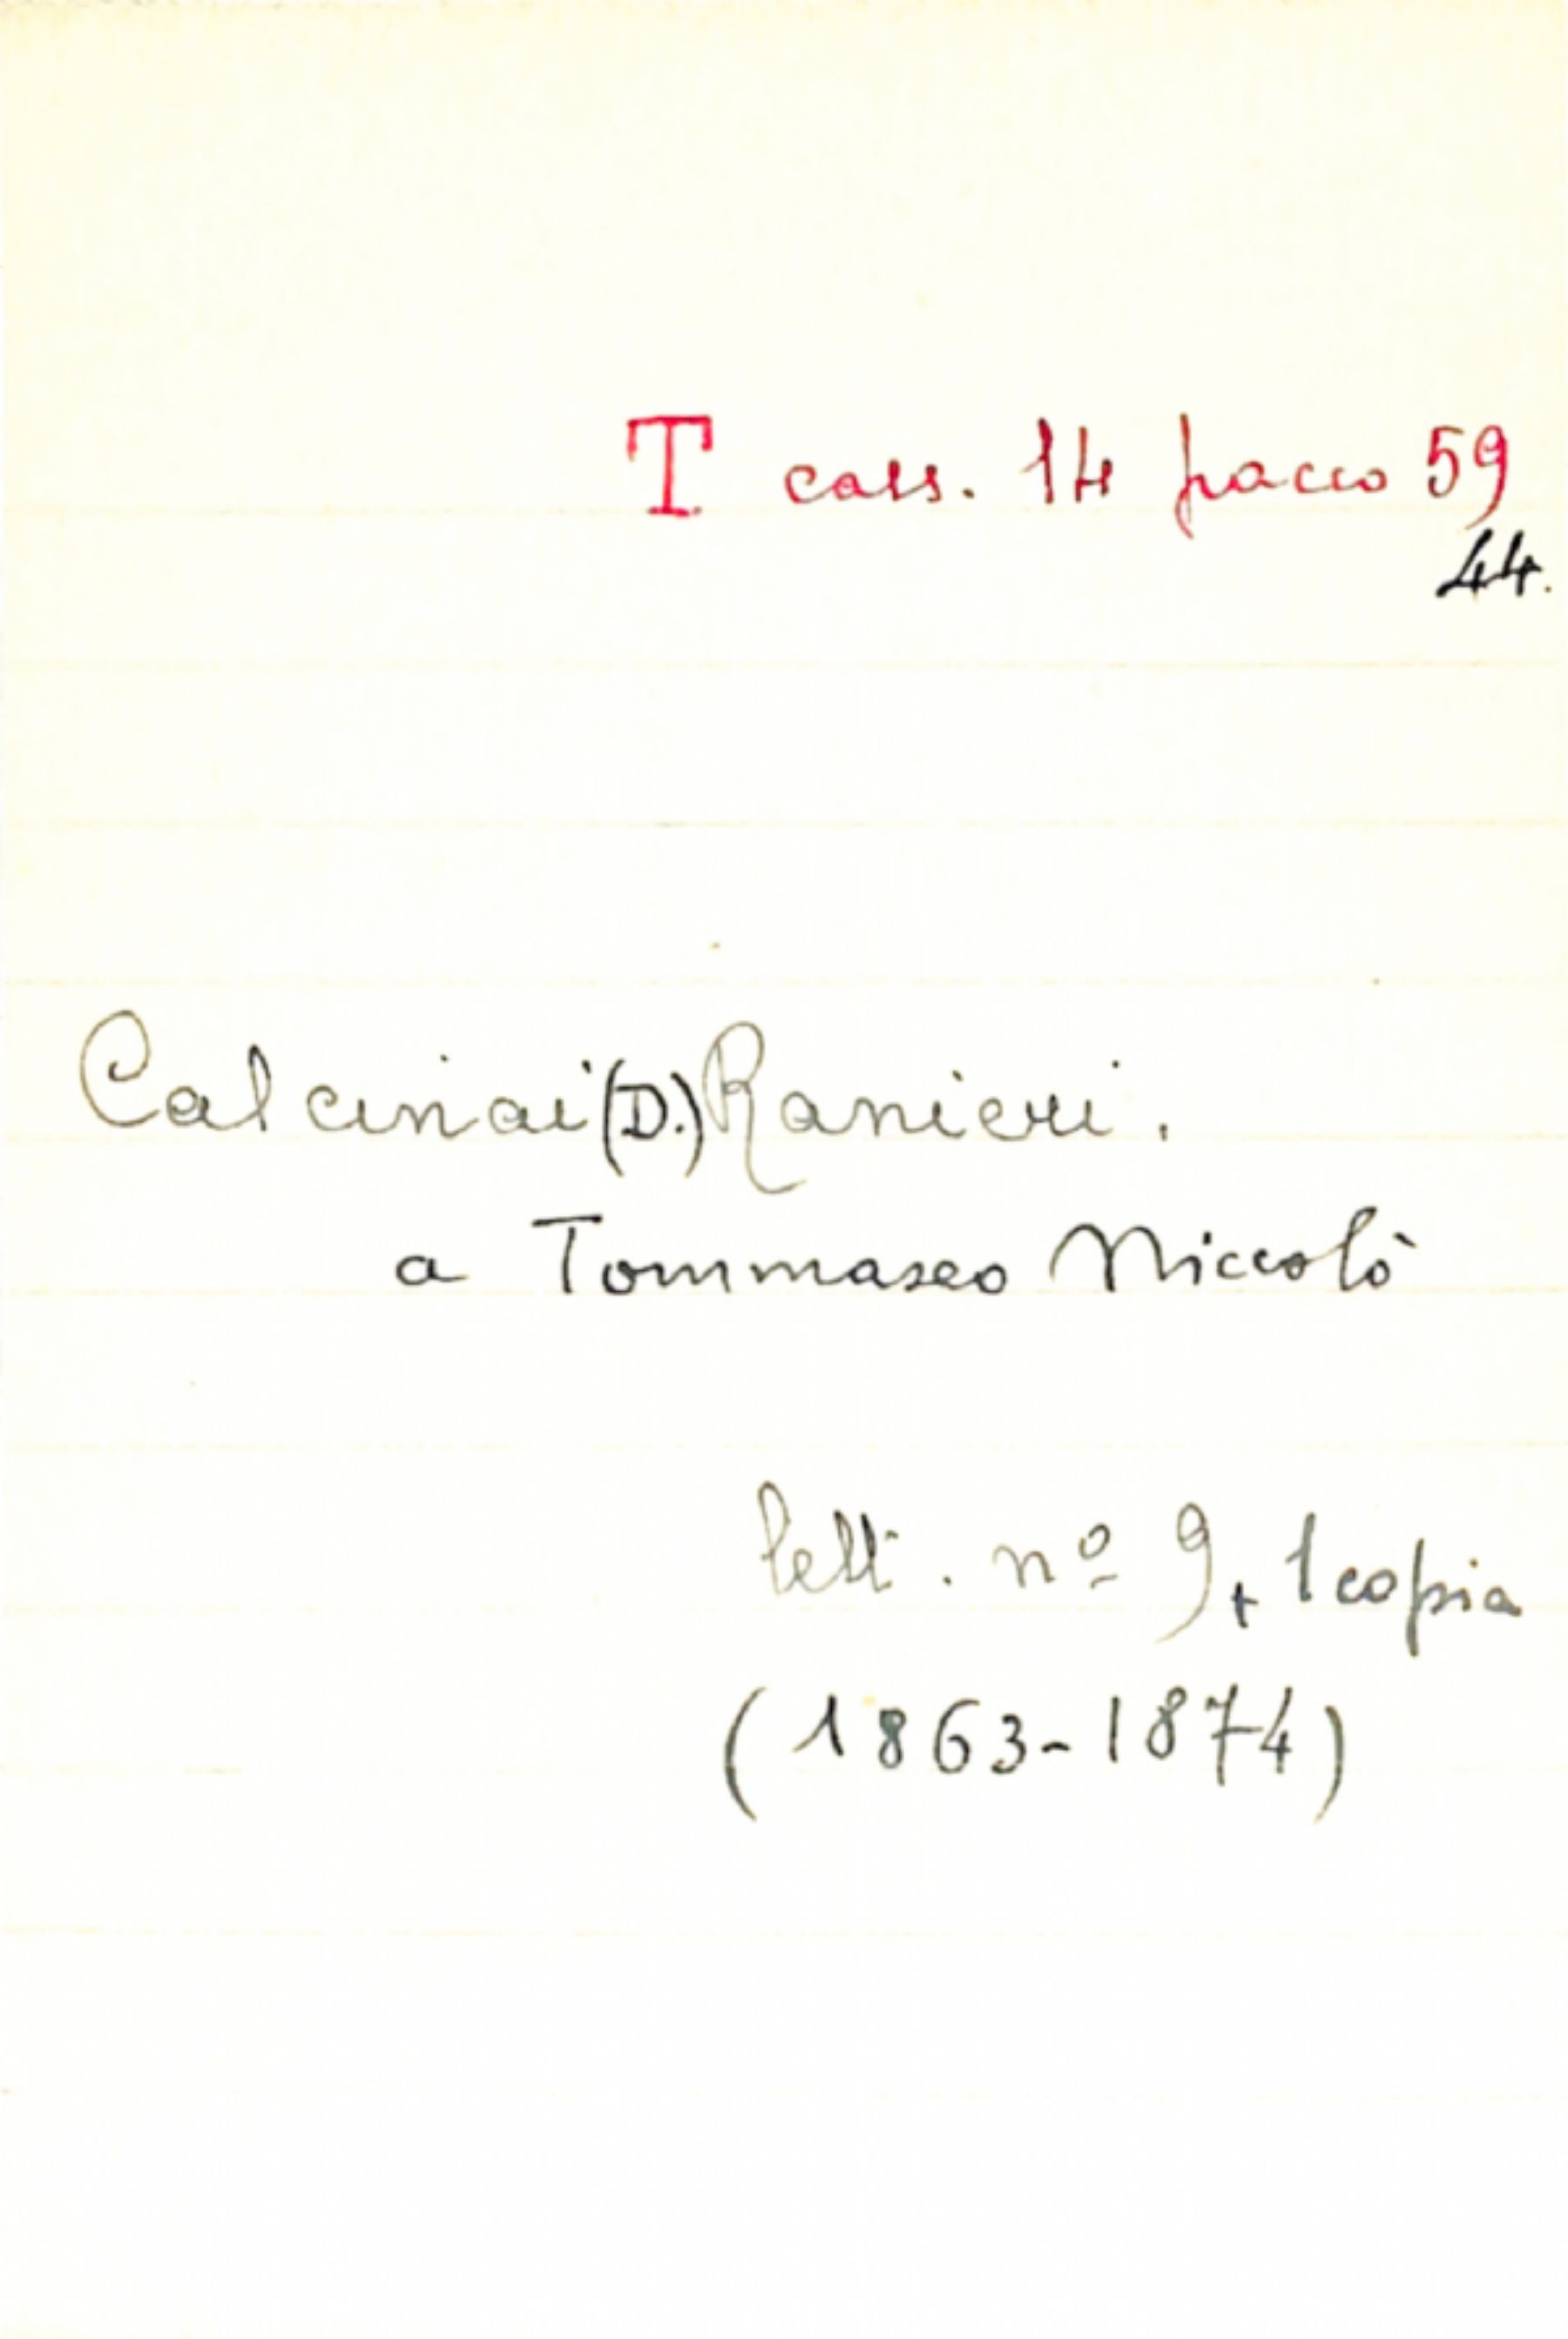 T cass. 14 pacco 59
44.
Calcinai (D.) Ranieri.
a Tommaseo Niccolò
lett. nº 9 + 1 copia
(1863-1874)